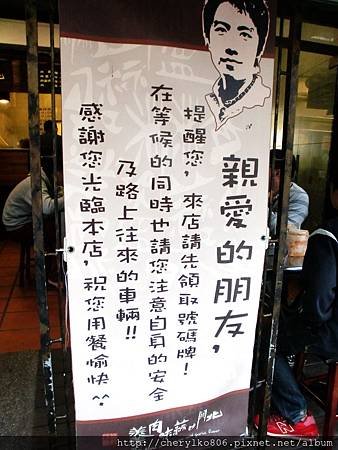 親愛的朋友，
提醒您，來店請先領取號碼牌！
在等候的同時也請您注意自身的安全
及路上往來的車輛！！
感謝您光臨本店，祝您用餐愉快^^
http://cherylko806.pixnet.net/album